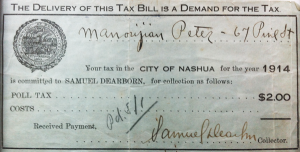 THE DELIVERY OF THIS TAX BILL IS A DEMAND FOR THE TAX
Manoujian Peter - 67 Pine St
Your tax in the CITY OF NASHUA for the year 1914
is committed to SAMUEL DEARBORN, for collection as follows:
POLL TAX $2.00
COSTS
Pd. 5/1
Received Payment, Samuel Dearborn
Collector.